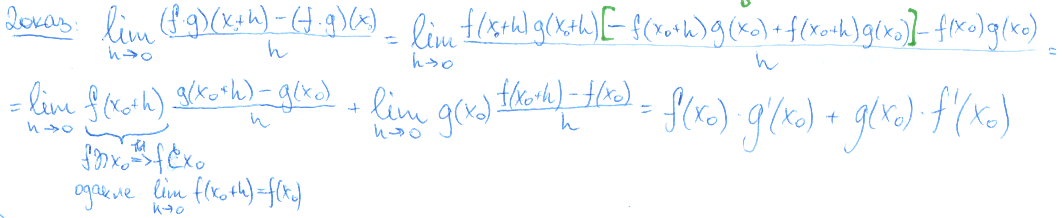 Доказ: lim_{h→0} ((f·g)(x₀+h) − (f·g)(x₀))/h = lim_{h→0} (f(x₀+h)g(x₀+h)[− f(x₀+h)g(x₀) + f(x₀+h)g(x₀)] − f(x₀)g(x₀))/h =
= lim_{h→0} f(x₀+h) (g(x₀+h) − g(x₀))/h + lim_{h→0} g(x₀) (f(x₀+h) − f(x₀))/h = f(x₀)·g'(x₀) + g(x₀)·f'(x₀)
одакле lim_{h→0} f(x₀+h) = f(x₀)